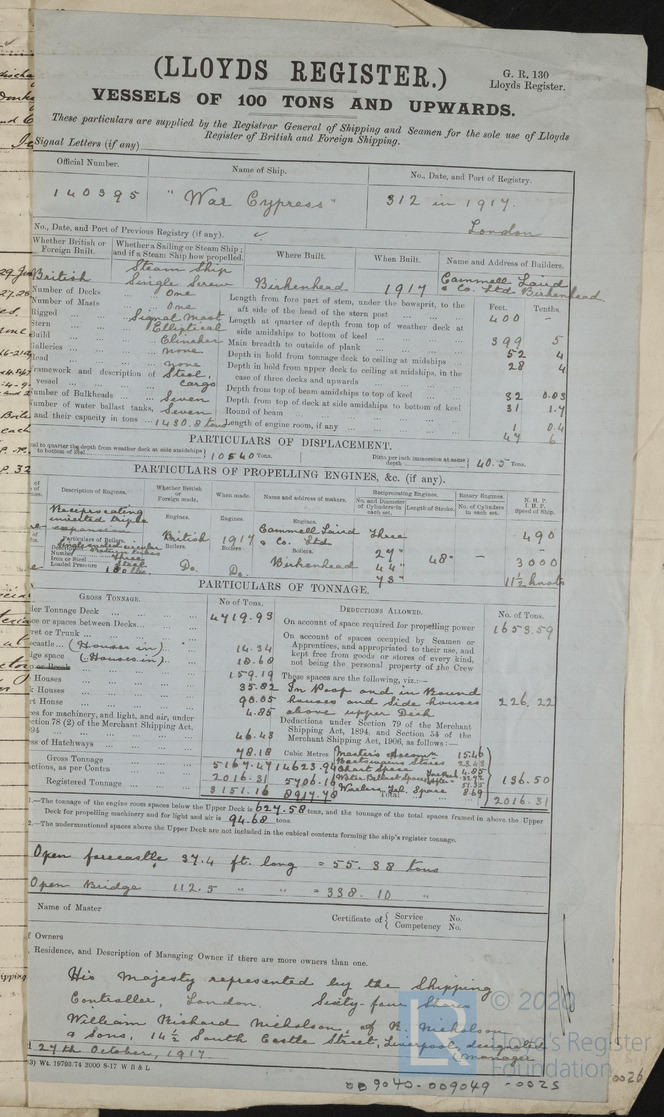 (LLOYDS REGISTER.)
G. R. 130
Lloyds Register.
VESSELS OF 100 TONS AND UPWARDS.
These particulars are supplied by the Registrar General of Shipping and Seamen for the sole use of Lloyds
Register of British and Foreign Shipping.
Signal Letters (if any)
Official Number. Name of Ship. No., Date, and Port of Registry.
140395 "War Cypress" 312 in 1917.
London
No., Date, and Port of Previous Registry (if any).
Whether British or Foreign Built. Whether a Sailing or Steam Ship; and if a Steam Ship how propelled. Where Built. When Built. Name and Address of Builders.
British Steam Ship Single Screw Birkenhead 1917 Cammell Laird & Co. Ltd Birkenhead
Number of Decks One
Number of Masts One
Rigged Signal Mast
Stern Elliptical
Build Clincher
Galleries none
Head none
Framework and description of vessel Steel, Cargo
Number of Bulkheads Seven
Number of water ballast tanks, Seven
and their capacity in tons 1430.8 tons
Feet. Tenths.
Length from fore part of stem, under the bowsprit, to the
aft side of the head of the stern post 400 -
Length at quarter of depth from top of weather deck at
side amidships to bottom of keel 399 5
Main breadth to outside of plank 52 4
Depth in hold from tonnage deck to ceiling at midships 28 4
Depth in hold from upper deck to ceiling at midships, in the
case of three decks and upwards
Depth from top of beam amidships to top of keel 32 0.03
Depth from top of deck at side amidships to bottom of keel 31 1.7
Round of beam 1 0.4
Length of engine room, if any 47 6
PARTICULARS OF DISPLACEMENT.
to quarter the depth from weather deck at side amidships to bottom of keel 10540 Tons. Ditto per inch immersion at same depth 40.5 Tons.
PARTICULARS OF PROPELLING ENGINES, &c. (if any).
Description of Engines. Whether British or Foreign made. When made. Name and address of makers. Reciprocating Engines. No. and Diameter of Cylinders in each set. Length of Stroke. Rotary Engines. No. of Cylinders in each set. N. H. P. I. H. P. Speed of Ship.
Reciprocating inverted triple expansion
Engines. British Engines. 1917 Engines. Cammell Laird & Co. Ltd Three 490
Particulars of Boilers.
Number Three
Iron or Steel Steel
Loaded Pressure 180 lbs
Boilers. Do. Boilers. Do. Boilers. Birkenhead
27" 44" 73" 48" - 3000
11½ knots
PARTICULARS OF TONNAGE.
GROSS TONNAGE. No of Tons.
Under Tonnage Deck 4719.93
Space or spaces between Decks
Turret or Trunk
Forecastle (Houses in) 14.34
Bridge space (Houses in) 18.68
or Break
Houses 159.19
Houses 35.82
Chart House 90.05
Spaces for machinery, and light, and air, under 4.85
Section 78 (2) of the Merchant Shipping Act,
1894 46.43
Excess of Hatchways 78.18
Cubic Metres
Gross Tonnage 5167.47 14623.94
Deductions, as per Contra 2016.31 5706.16
Registered Tonnage 3151.16 8917.78
DEDUCTIONS ALLOWED. No. of Tons.
On account of space required for propelling power 1653.59
On account of spaces occupied by Seamen or
Apprentices, and appropriated to their use, and
kept free from goods or stores of every kind,
not being the personal property of the Crew
These spaces are the following, viz.:—
In Poop and in Round
houses and Side houses 226.22
above upper Deck
Deductions under Section 79 of the Merchant
Shipping Act, 1894, and Section 54 of the
Merchant Shipping Act, 1906, as follows:—
Master's Account 15.46
Boatswain's Stores
Chart Space 4.85
Water Ballast Space
Wireless Tel. Space 8.69
136.50
Total 2016.31
1.—The tonnage of the engine room spaces below the Upper Deck is 627.58 tons, and the tonnage of the total spaces framed in above the Upper
Deck for propelling machinery and for light and air is 94.68 tons.
2.—The undermentioned spaces above the Upper Deck are not included in the cubical contents forming the ship's register tonnage.
Open forecastle 37.4 ft. long = 55.38 tons
Open Bridge 112.5 " " = 338.10 "
Name of Master Certificate of { Service No.
Competency No.
of Owners
Residence, and Description of Managing Owner if there are more owners than one.
His Majesty represented by the Shipping
Controller, London. Sixty-four Shares
William Richard Nicholson, of R. Nicholson
& Sons, 14½ South Castle Street, Liverpool, designated
manager
27th October, 1917.
Wt. 19793.74 2000 8-17 W B & L
© 2020
Lloyd's Register
Foundation
009040-009049-0025
0026